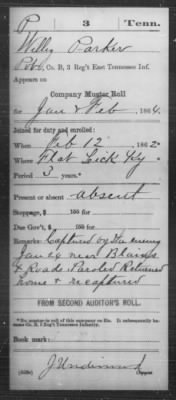 P 3 Tenn.
Willis Parker
Pvt, Co. B, 3 Reg't East Tennessee Inf.
Appears on
Company Muster Roll
for Jan & Feb, 1864.
Joined for duty and enrolled:
When Feb 12, 1862.
Where Flat Lick Ky
Period 3 years.*
Present or absent absent
Stoppage, $ 100 for
Due Gov't, $ 100 for
Remarks: Captured by the enemy
Jan 24 near Blains
X Roads Paroled Returned
home & recaptured
FROM SECOND AUDITOR'S ROLL.
Book mark:
J Undinwood
Copyist.